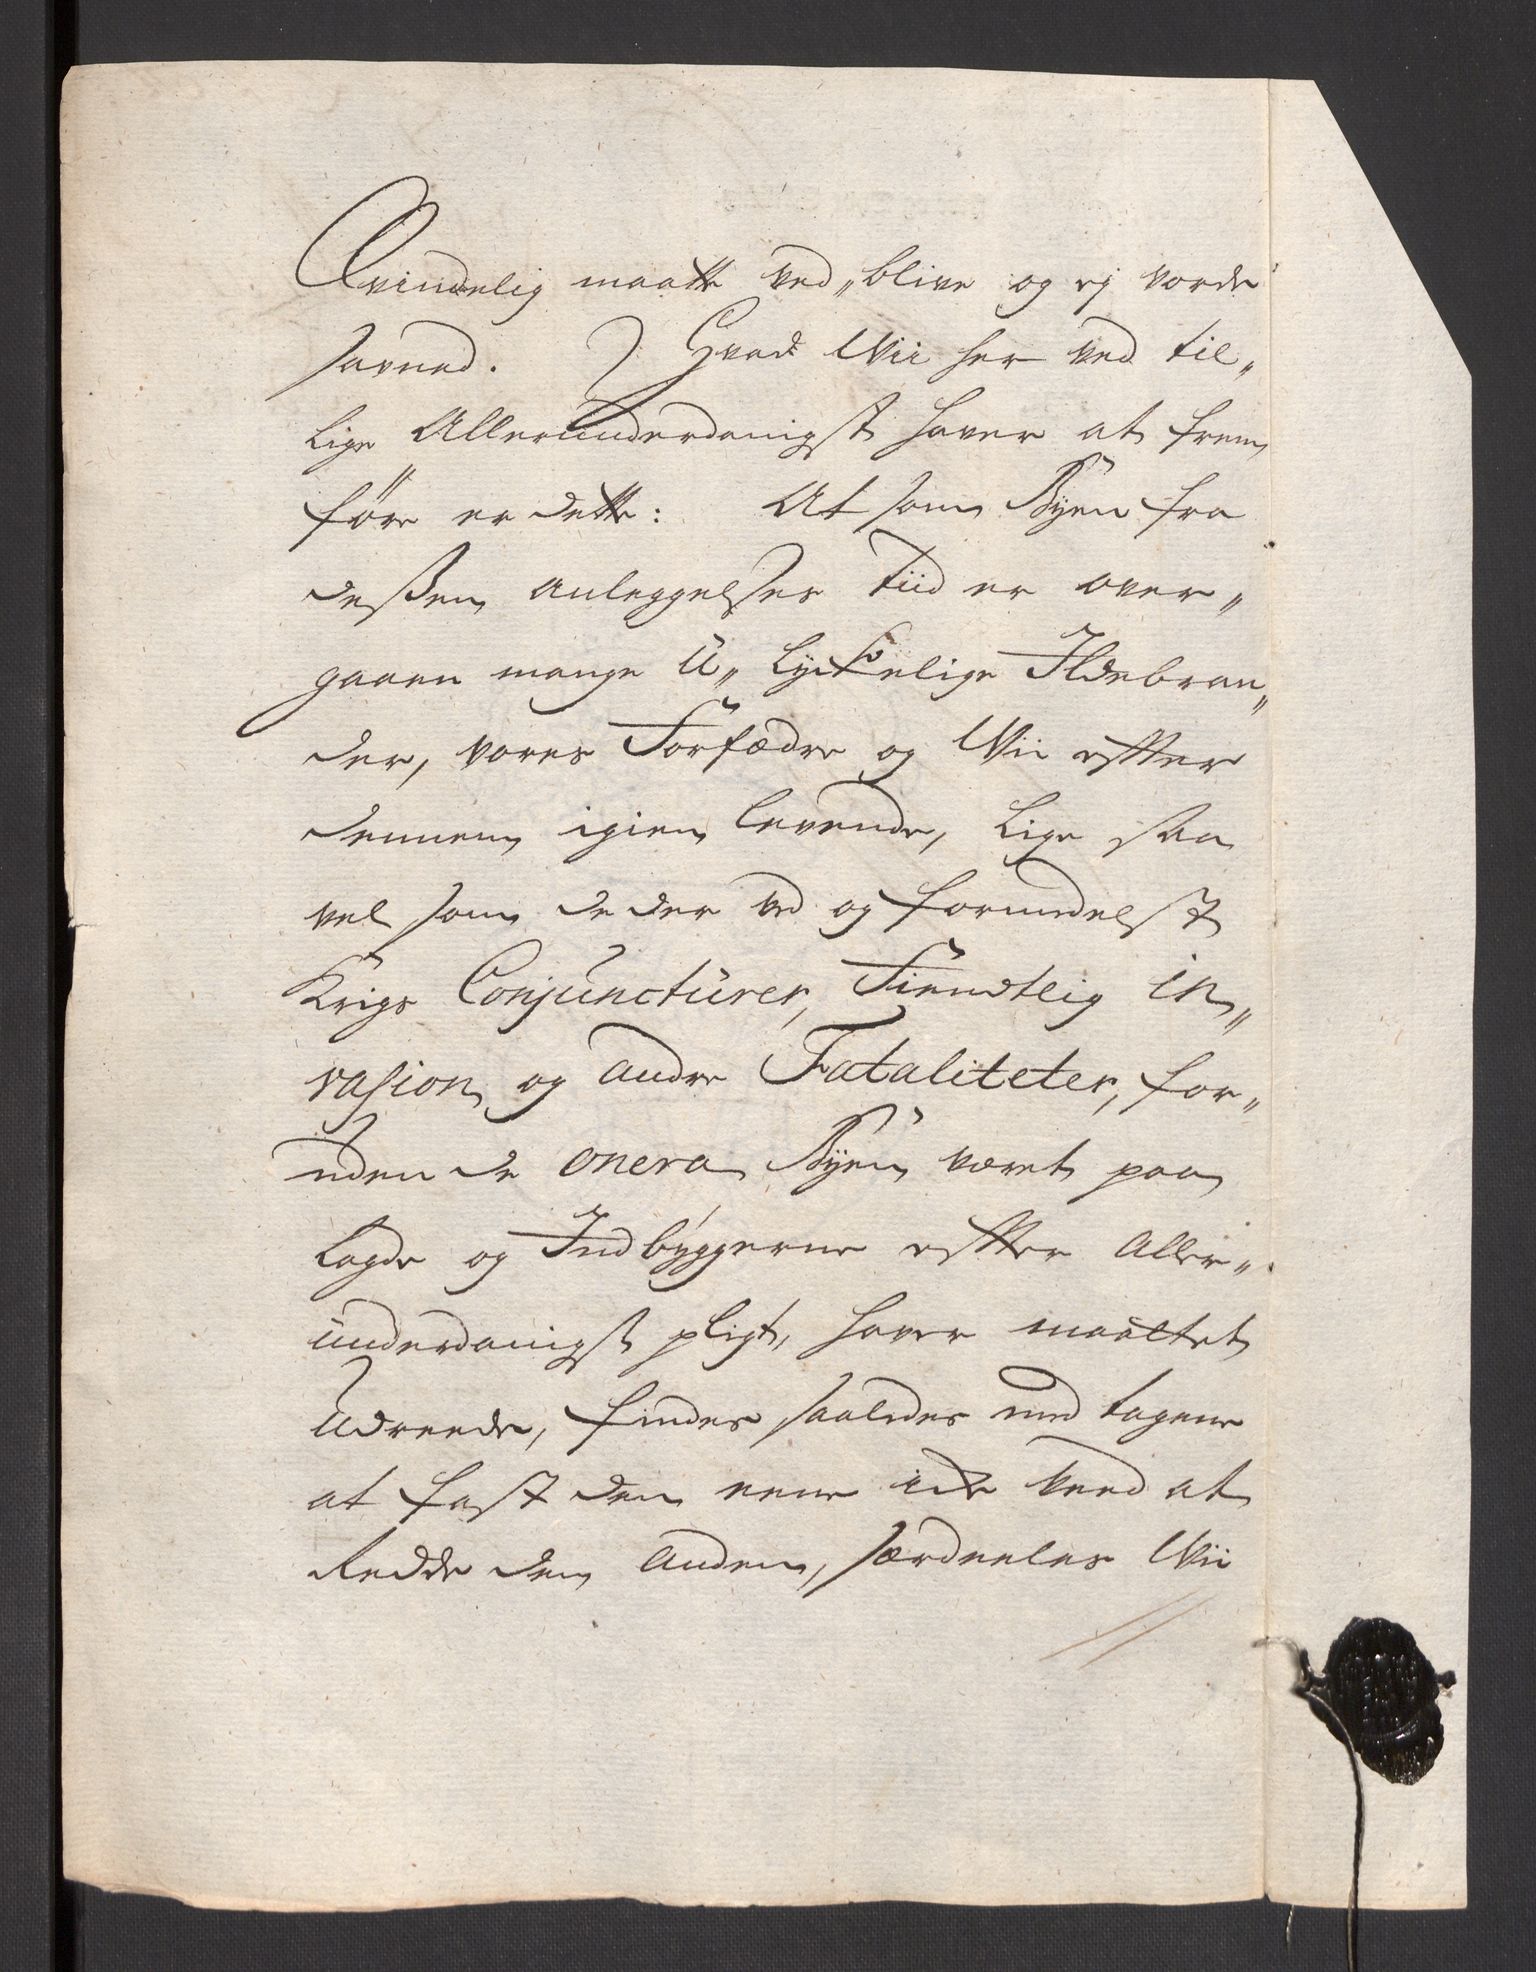 Qvindelig maatte ved„blive og ej vorde
savned. Hvad Wii her ved til„
lige Allerunderdanigst haver at frem
føre er dette: At som Byen fra
deßen anleggelses tiid er over„
gaaen mange U„lyckelige Ildebran„
der, vores Forfædre og Wii efter
dennem igien levende, lige saa
vel som de der ved og formedelst
Krigs Conjuncturer, Fiendtlig in„
vasion og andre Fataliteter, for„
uden de onera Byen været paa
lagde og Indbyggerne efter Aller„
underdanigst pligt, haver maattet
Udreede, findes saaledes med tagene
at fast den eene icke veed at
Redde den anden, særdeeles Wii